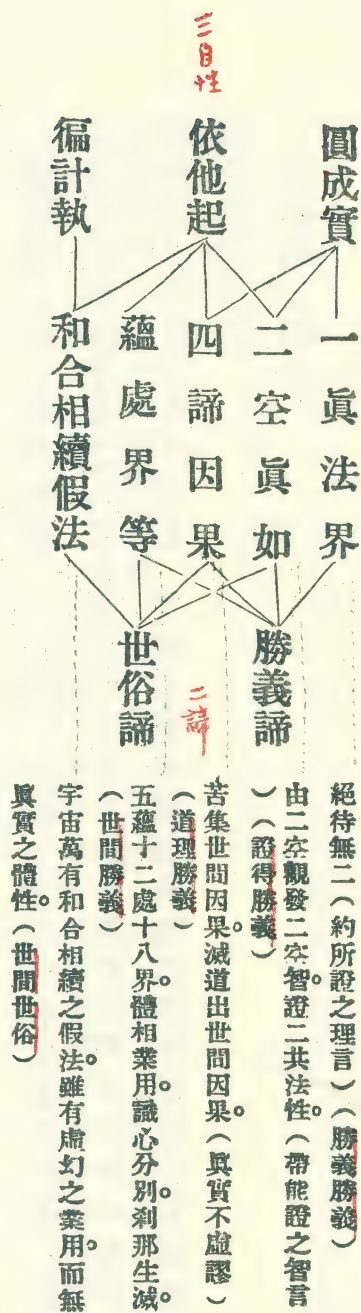 三自性
圓成實
依他起
徧計執
一眞法界
二空眞如
四諦因果
蘊處界等
和合相續假法
勝義諦
世俗諦
二諦
絕待無二（約所證之理言）（勝義勝義）
由二空觀發二空智。證二共法性。（帶能證之智言
）（證得勝義）
苦集世間因果。滅道出世間因果。（眞實不虛謬）
（道理勝義）
五蘊十二處十八界。體相業用。識心分別。刹那生滅。
（世間勝義）
宇宙萬有和合相續之假法。雖有虛幻之業用。而無
眞實之體性。（世間世俗）